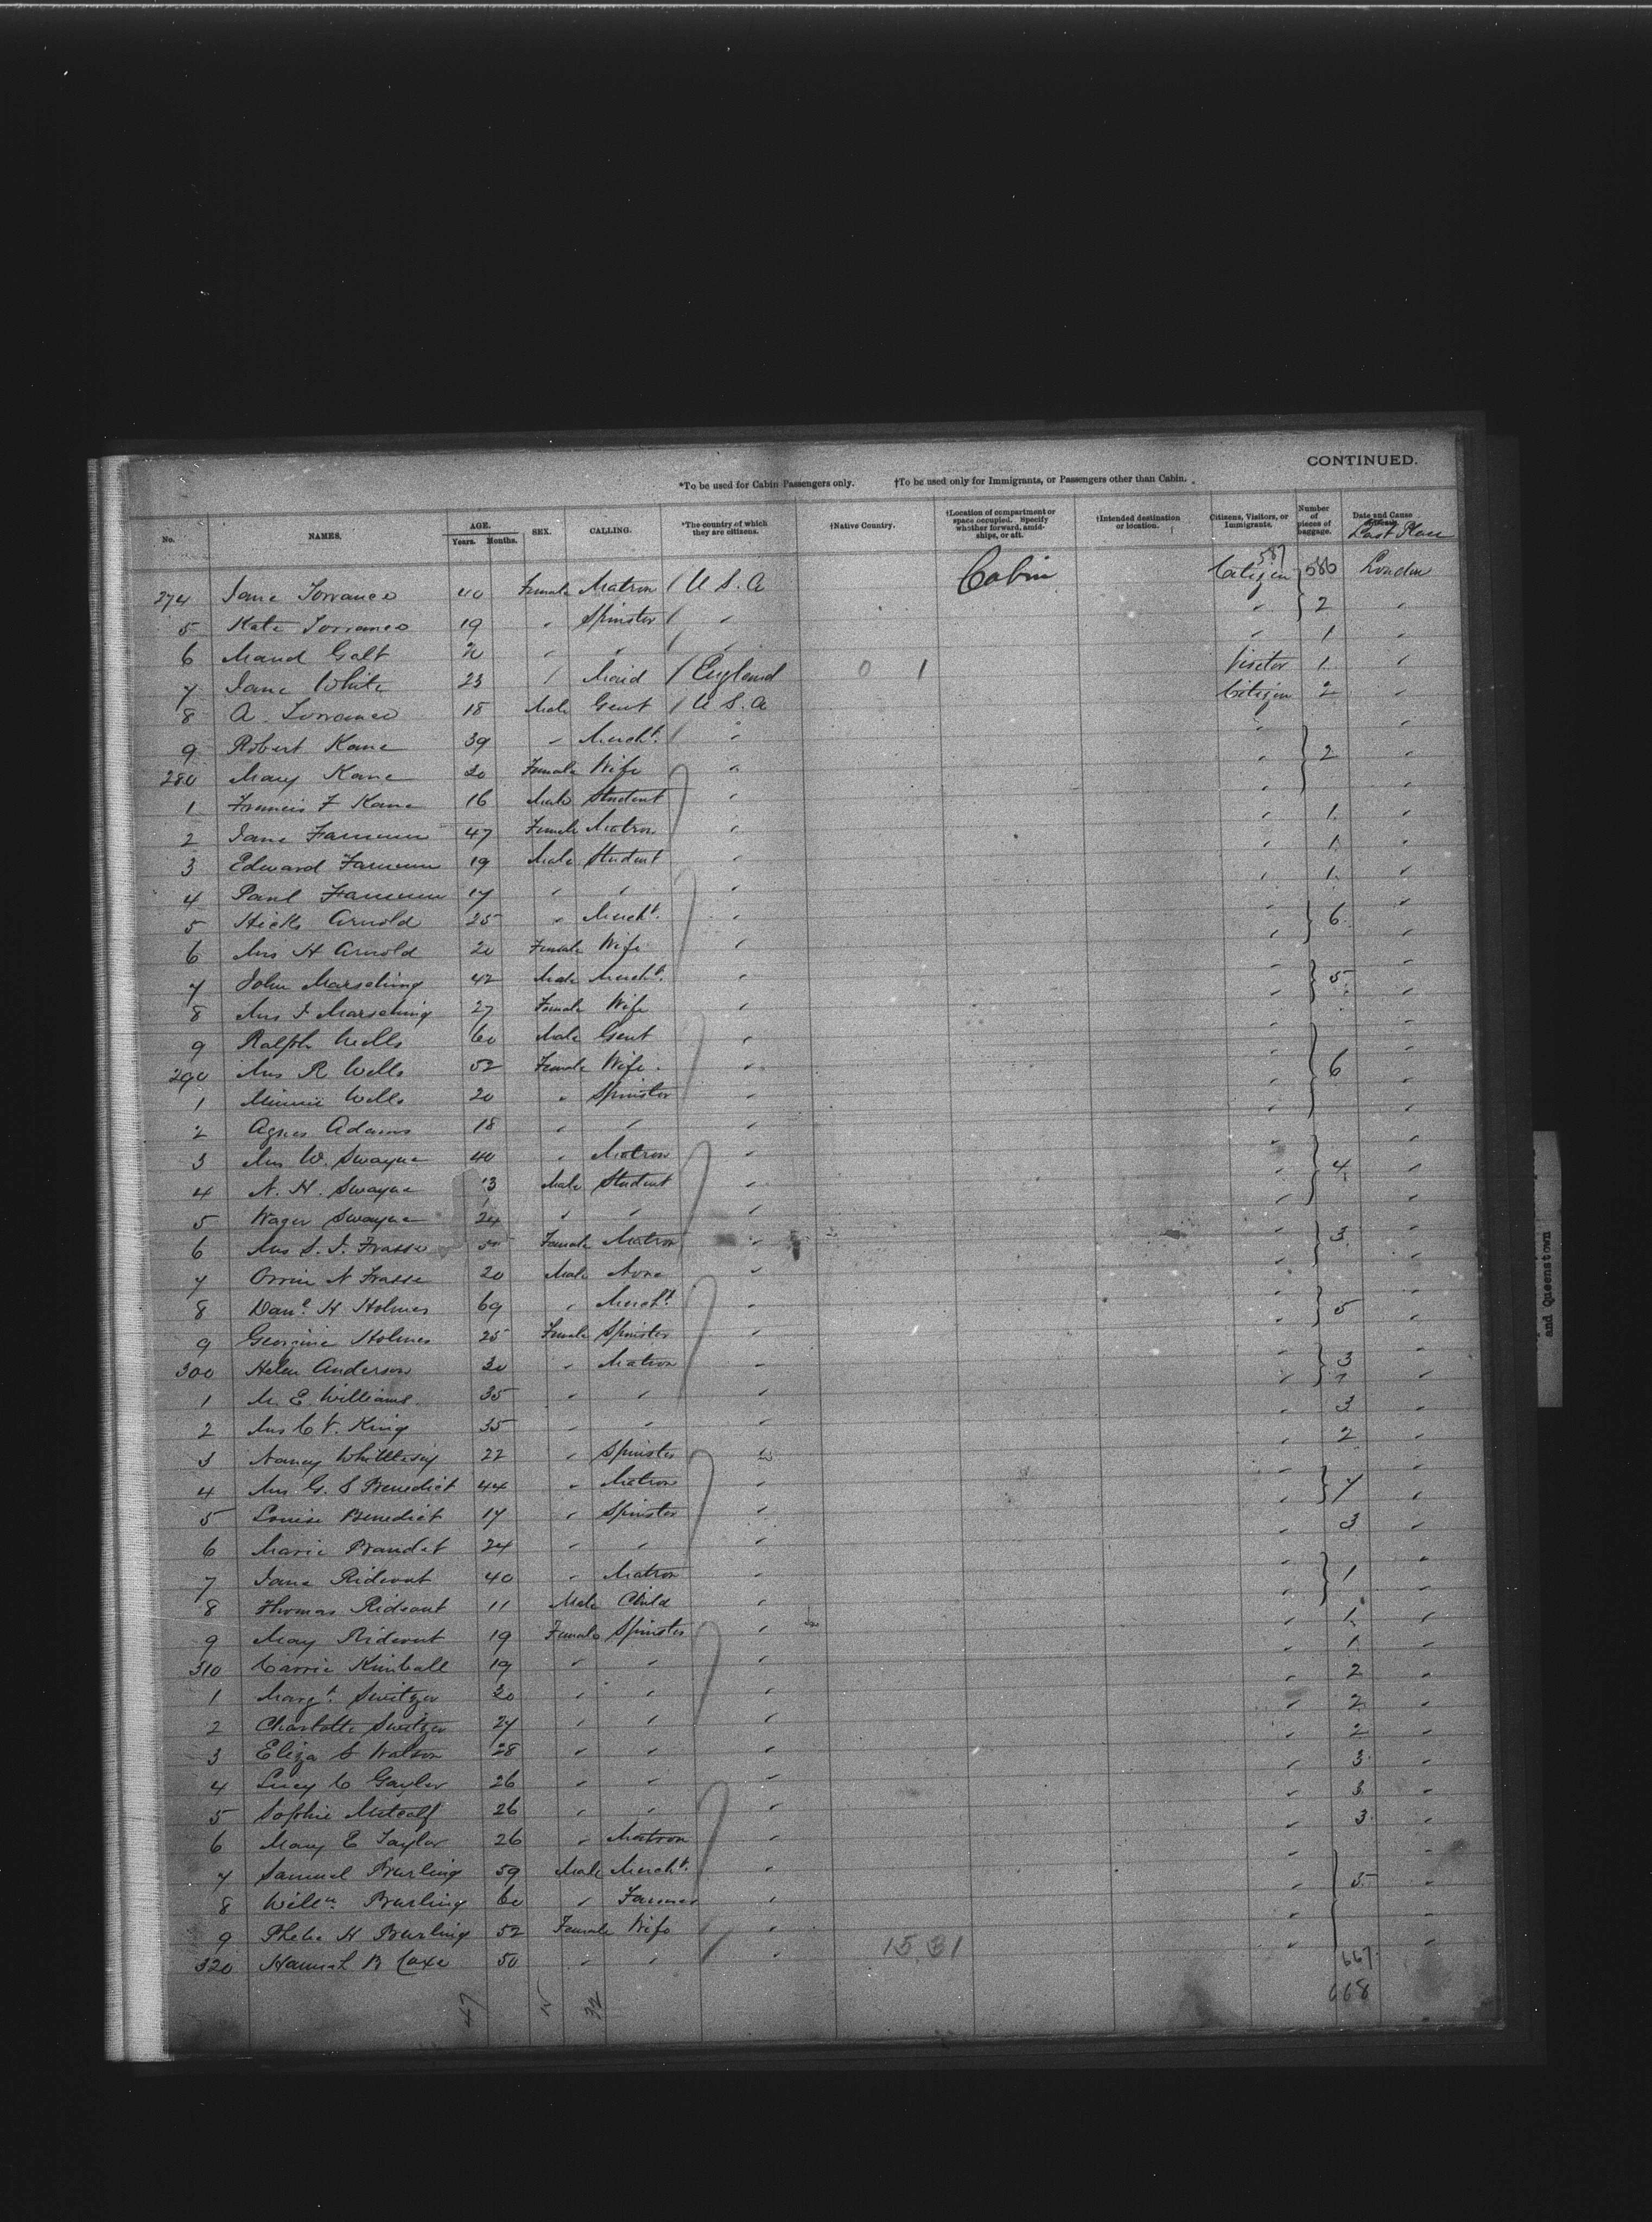 CONTINUED.
*To be used for Cabin Passengers only. †To be used only for Immigrants, or Passengers other than Cabin.
No. NAMES. AGE. Years. Months. SEX. CALLING. *The country of which they are citizens. †Native Country. †Location of compartment or space occupied. Specify whether forward, amidships, or aft. †Intended destination or location. Citizens, Visitors, or Immigrants. Number of pieces of baggage. Date and Cause Last Place
587
274 Jane Torrance 40 Female Matron / U S. A Cabin Citizen 586 London
5 Kate Torrance 19 " Spinster / " " 2 "
6 Maud Galt " " / " " 1 "
7 Jane White 23 / Maid / England 0 1 Visitor 1 "
8 A. Torrance 18 Male Gent / U S. A Citizen 2 "
9 Robert Kane 39 " Mercht. / " " "
280 Mary Kane 20 Female Wife " " 2 "
1 Francis F Kane 16 Male Student " " "
2 Jane Farnum 47 Female Matron " " 1 "
3 Edward Farnum 19 Male Student " " 1 "
4 Paul Farnum 17 " " " " 1 "
5 Hicks Arnold 25 " Mercht. " " 6 "
6 Mrs H Arnold 20 Female Wife " " "
7 John Marsching 42 Male Mercht. " " 5 "
8 Mrs J Marsching 27 Female Wife " " "
9 Ralph Wells 60 Male Gent " " "
290 Mrs R Wells 52 Female Wife " " 6 "
1 Minnie Wells 20 " Spinster " " "
2 Agnes Adams 18 " " " " "
3 Mrs W. Swayne 40 " Matron " " "
4 N. H. Swayne 13 Male Student " " 4 "
5 Wager Swayne 24 " " " " "
6 Mrs S. J. Frasse Female Matron " " 3 "
7 Orrin N Frasse 20 Male None " " "
8 Danl. H Holmes 69 " Mercht " " 5 "
9 Georgine Holmes 25 Female Spinster " " "
300 Helen Anderson 30 " Matron " " 3 "
1 M. E. Williams 35 " " " " "
2 Mrs C V. King 35 " " " " 3 "
3 Nancy Whittlesey 22 " Spinster " " 2 "
4 Mrs G. S Benedict 44 " Matron " " 7 "
5 Louise Benedict 17 " Spinster " " "
6 Marie Baudet 24 " " " " 3 "
7 Jane Rideout 40 " Matron " " 1 "
8 Thomas Rideout 11 Male Child " " "
9 May Rideout 19 Female Spinster " " 1 "
310 Carrie Kimball 19 " " " " 1 "
1 Margt. Switzer 20 " " " " 2 "
2 Charlotte Switzer 27 " " " " 2 "
3 Eliza S Watson 28 " " " " 2 "
4 Lucy C Gaylor 26 " " " " 3 "
5 Sophie Metcalf 26 " " " " 3 "
6 Mary E Taylor 26 " Matron " " 3 "
7 Samuel Burling 59 Male Mercht. " " "
8 Willm Burling 60 " Farmer " " 5 "
9 Phebe H Burling 52 Female Wife " " "
320 Hannah B Coxe 50 " " " 1531 " 667 "
47 32 668
and Queenstown